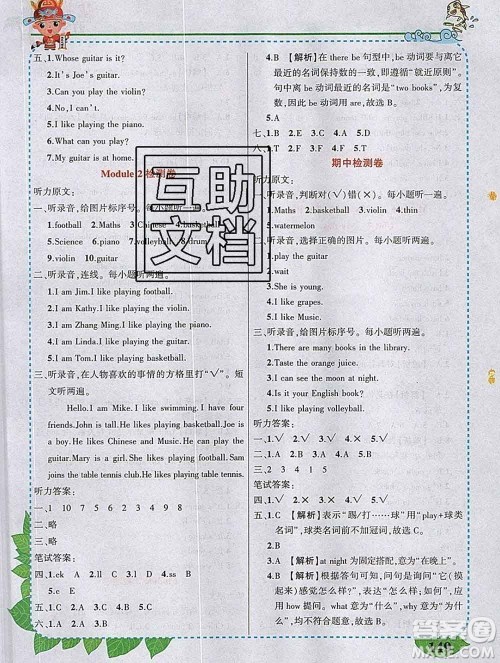 五、1.Whose guitar is it?
2.It's Joe's guitar.
3.Can you play the violin?
4.No,I can't.
5.I like playing the piano.
6.What can you play?
7.My guitar is at home.
Module 2 检测卷
听力原文:
一、听录音,给图片标序号。每小题听两遍。
1.football 2.Maths 3.Chinese 4.basketball
5.Science 6.piano 7.volleyball 8.drum
9.violin 10.guitar
二、听录音,连线。每小题听两遍。
1.I am Jim.I like playing football.
2.I am Kathy.I like playing violin.
3.I am Zhang Ming.I like playing
4.I am Linda.I like playing guitar.
5.I am Tom.I like playing basketball.
三、听录音,在人物喜欢的事情的方格里打“√”。短
文听两遍。
Hello.I am Mike. I like swimming. I have four
friends.John is tall.He likes playing volleyball.
Joe is a boy.He likes Chinese and Music.
Mary is a girl.She likes playing basketball. Sam
joins the table tennis club.He likes table tennis.
听力答案:
一、1 10 8 9 7 2 4 5 3 6
二、略
三、略
笔试答案:
四、1.ck A 2.th A 3.ll A 4.ss A
5.e E
五、1.B 2.A 3.C 4.C 5.C
六、1.C 2.A
4.B 【解析】在 there be 句型中,be 动词要与离它
最近的名词保持数的一致,即遵循“就近原则”。
句中离 be 动词最近的名词是“two books”,为复
数,因此 be 动词用 are,故选 B。
5.A
七、1.B 2.E 3.D 4.A 5.C
期中检测卷
听力原文:
一、听录音,判断对(√)错(×)。每小题听两遍。
1.Maths 2.basketball 3.violin 4.thirsty
5.watermelon
二、听录音,选择正确的图片。每小题听两遍。
1.play the guitar
2.wait
3.She is young.
4.I like Music.
三、听录音,给图片标序号。每小题听两遍。
1.There are many books in the library.
2.Taste the orange juice.
3.I can see the moon at night.
4.Is it your English book?
5.I like playing volleyball.
听力答案:
一、1.√ 2.× 3.√ 4.× 5.√
二、1.A 2.B 3.B 4.A
三、2 3 4 5 1
笔试答案:
四、1.√ 2.× 3.× 4.√ 5.√
五、1.C 【解析】表示“踢/打……”用“play+球类
名词”,球类名词前不加冠词,故选 C。
2.A
3.B 【解析】at night 为固定搭配,意为“在晚上”。
4.B 【解析】根据答句可知,问句在询问对方(摸
起来)感觉怎么样,表示“怎么样”,要用疑问
词 how。what 意为“什么”,why 意为“为什么”,
均不符合题意。故选 B。
互助
文档